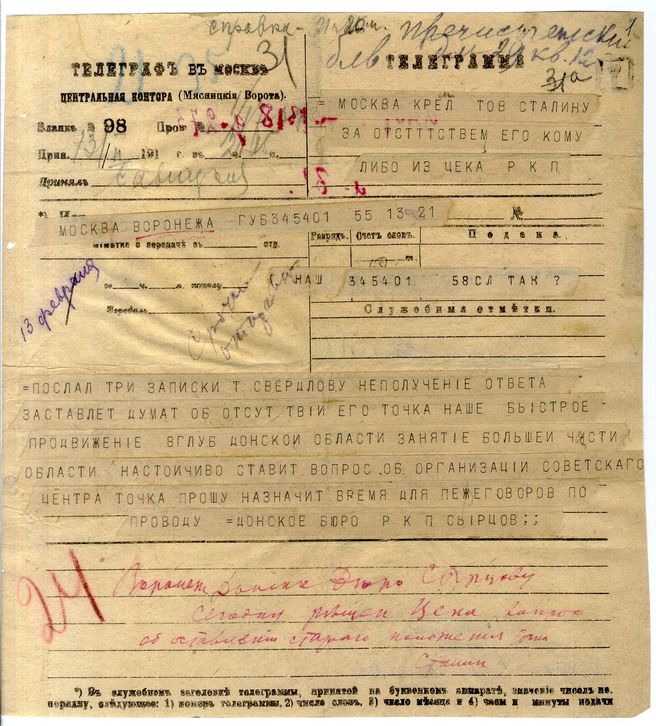 справка
Пречистенский
б-в 29 кв. 12
31
31а
ТЕЛЕГРАФЪ ВЪ МОСКВѢ
ЦЕНТРАЛЬНАЯ КОНТОРА (Мясницкія Ворота).
Бланкъ № 98
Прин. 13/II 191 г. въ
Принялъ
ТЕЛЕГРАММА
= МОСКВА КРЕЛ ТОВ СТАЛИНУ
ЗА ОТСТТТСТВЕМ ЕГО КОМУ
ЛИБО ИЗ ЦЕКА Р К П
МОСКВА ВОРОНЕЖА ГУБ345401 55 13 21 №
отд.
Разрядъ. Счетъ словъ. Подача.
НАШ 345401 58СЛ ТАК ?
ч. м. пополу
Передалъ
Служебныя отмѣтки.
13 февраля
Срочно
=ПОСЛАЛ ТРИ ЗАПИСКИ Т СВЕРДЛОВУ НЕПОЛУЧЕНІЕ ОТВЕТА
ЗАСТАВЛЕТ ДУМАТ ОБ ОТСУТ ТВІЙ ЕГО ТОЧКА НАШЕ БЫСТРОЕ
ПРОДВИЖЕНИЕ ВГЛУБ ДОНСКОИ ОБЛАСТИ ЗАНЯТІЕ БОЛЬШЕИ ЧАСТИ
ОБЛАСТИ НАСТОИЧИВО СТАВИТ ВОПРОС ОБ ОРГАНИЗАЦІИ СОВЕТСКАГО
ЦЕНТРА ТОЧКА ПРОШУ НАЗНАЧИТ ВРЕМЯ ДЛЯ ПЕЖЕГОВОРОВ ПО
ПРОВОДУ =ДОНСКОЕ БЮРО Р К П СЫРЦОВ;;
24
Воронеж Донское Бюро Сырцову
Сегодня решен Цека вопрос
об оставлении стараго положения
Сталин
*) Въ служебномъ заголовкѣ телеграммы, принятой на буквенномъ аппаратѣ, значеніе чиселъ по
порядку, слѣдующее: 1) номеръ телеграммы, 2) число словъ, 3) число мѣсяца и 4) часы и минуты подачи